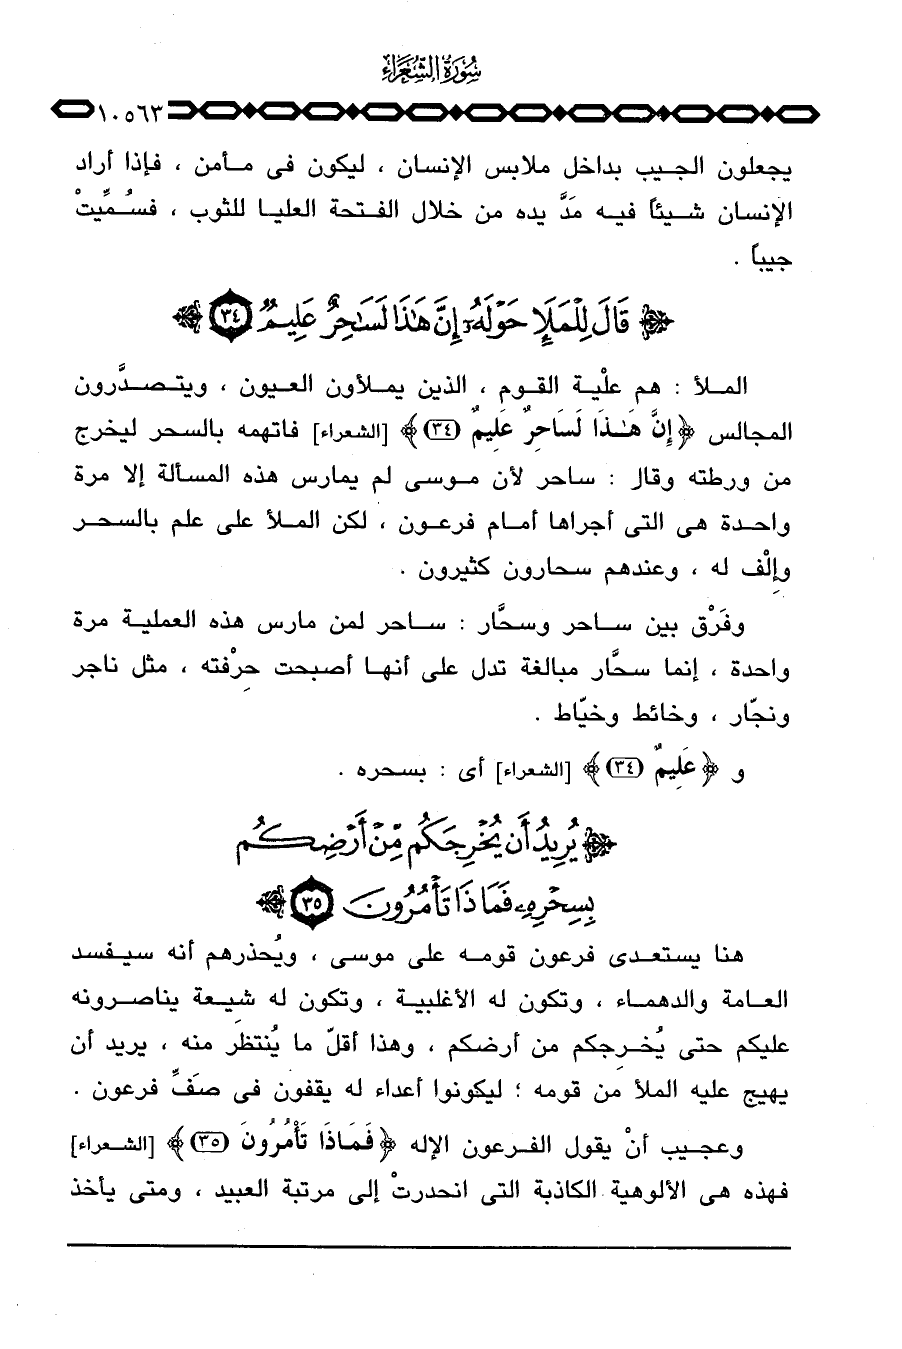 سُورَةُ الشُّعَرَاءِ
١٠٥٦٣
يجعلون الجيب بداخل ملابس الإنسان ، ليكون فى مأمن ، فإذا أراد
الإنسان شيئاً فيه مَدَّ يده من خلال الفتحة العليا للثوب ، فسُمِّيتْ
جيباً .
﴿ قَالَ لِلْمَلَإِ حَوْلَهُۥٓ إِنَّ هَٰذَا لَسَٰحِرٌ عَلِيمٌ ٣٤ ﴾
الملأ : هم علْية القوم ، الذين يملأون العيون ، ويتصدَّرون
المجالس ﴿ إِنَّ هَٰذَا لَسَاحِرٌ عَلِيمٌ (٣٤) ﴾ [الشعراء] فاتهمه بالسحر ليخرج
من ورطته وقال : ساحر لأن موسى لم يمارس هذه المسألة إلا مرة
واحدة هى التى أجراها أمام فرعون ، لكن الملأ على علم بالسحر
وإلْف له ، وعندهم سحارون كثيرون .
وفَرْق بين ساحر وسحَّار : ساحر لمن مارس هذه العملية مرة
واحدة ، إنما سحَّار مبالغة تدل على أنها أصبحت حِرْفته ، مثل ناجر
ونجّار ، وخائط وخيّاط .
و ﴿ عَلِيمٌ (٣٤) ﴾ [الشعراء] أى : بسحره .
﴿ يُرِيدُ أَن يُخْرِجَكُم مِّنْ أَرْضِكُم
بِسِحْرِهِۦ فَمَاذَا تَأْمُرُونَ ٣٥ ﴾
هنا يستعدى فرعون قومه على موسى ، ويُحذرهم أنه سيفسد
العامة والدهماء ، وتكون له الأغلبية ، وتكون له شيعة يناصرونه
عليكم حتى يُخرِجكم من أرضكم ، وهذا أقلّ ما يُنتظَر منه ، يريد أن
يهيج عليه الملأ من قومه ؛ ليكونوا أعداء له يقفون فى صَفِّ فرعون .
وعجيب أنْ يقول الفرعون الإله ﴿ فَمَاذَا تَأْمُرُونَ (٣٥) ﴾ [الشعراء]
فهذه هى الألوهية الكاذبة التى انحدرتْ إلى مرتبة العبيد ، ومتى يأخذ